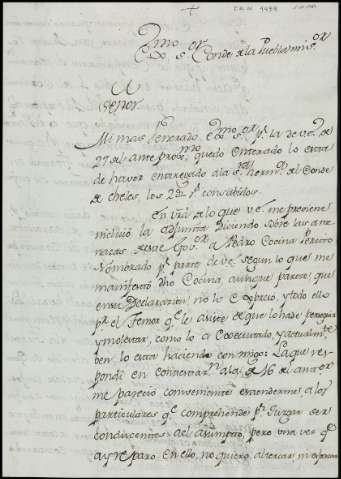 +
Exmo. Sor.
Conde de la Puebla mi Sor.
Señor
Mi mas Venerado Exmo. Sor. pr. la de ve. de
27 del ante proxmo. quedo enterado lo esta
de haver entregado a la sra. herma. del Conde
de Cheles, los 2 consabidos
En vta. de lo que ve. me previene
incluio la adjunta
Pedro Cocina Perito
Nombrado pr. parte de ve. segun lo que me
manifestó dho Cocina, aunque parece, que
en su Declaracion, no lo expreso, y todo ello
pr. el Temor qe. le asiste de que lo hade perseguir
y molestar, como lo a executado, y actualmte.
ben lo esta haciendo con migo: La que res-
pondi en contextan. a la de 16 del anter
me parecio conveniente extenderme a los
particulares qe. comprehende pr. Juzgar ser
conducentes al asumpto, pero una vez qe
ay reparo en ello, no quiero alterar mi